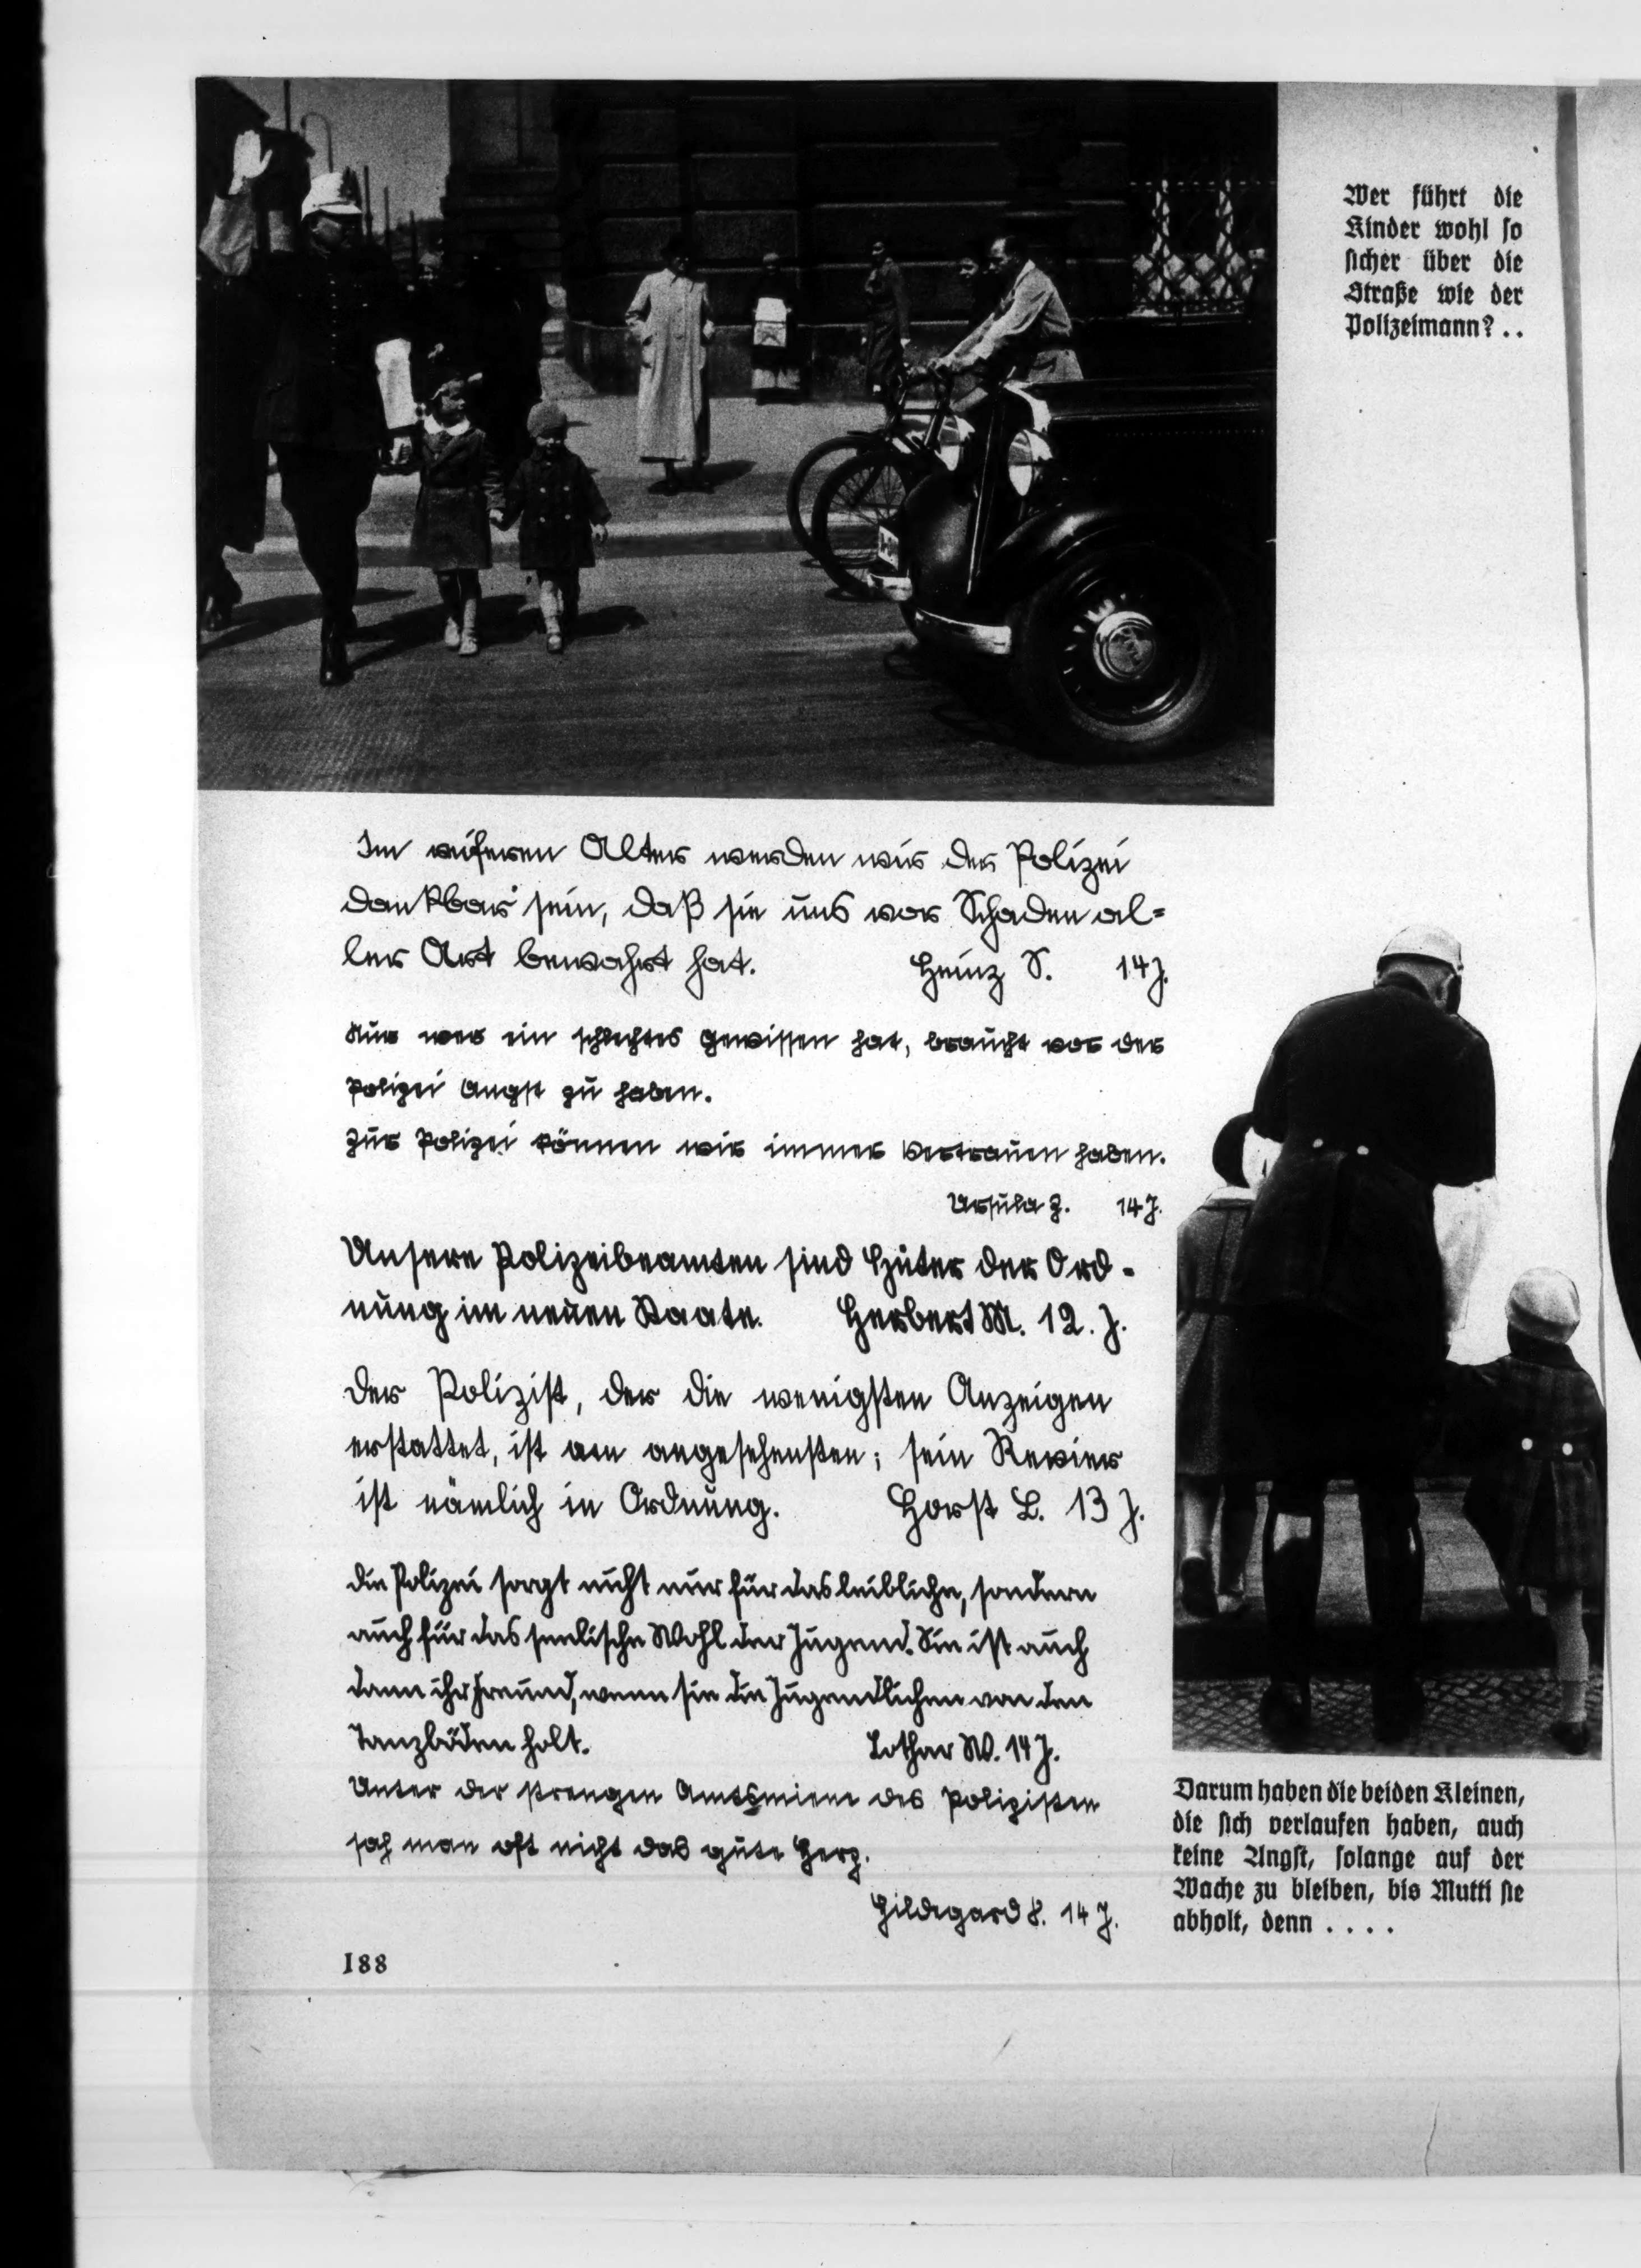 Wer führt die
Kinder wohl so
sicher über die
Straße wie der
Polizeimann? . .
Im reiferen Alter werden wir der Polizei
dankbar sein, daß sie uns vor Schaden al=
ler Art bewahrt hat. Heinz S. 14 J.
Nur wer ein schlechtes Gewissen hat, braucht vor der
Polizei Angst zu haben.
Zur Polizei können wir immer Vertrauen haben.
Ursula Z. 14 J.
Unsere Polizeibeamten sind Hüter der Ord-
nung im neuen Staate. Herbert M. 12. J.
Der Polizist, der die wenigsten Anzeigen
erstattet, ist am angesehensten; sein Revier
ist nämlich in Ordnung. Horst L. 13 J.
Die Polizei sorgt nicht nur für das leibliche, sondern
auch für das seelische Wohl der Jugend. Sie ist auch
dann ihr Freund, wenn sie die Jugendlichen von den
Tanzböden holt. Lothar W. 14 J.
Unter der strengen Amtsmiene des Polizisten
sah man oft nicht das gute Herz.
Hildegard 14 J.
Darum haben die beiden Kleinen,
die sich verlaufen haben, auch
keine Angst, solange auf der
Wache zu bleiben, bis Mutti sie
abholt, denn . . . .
188